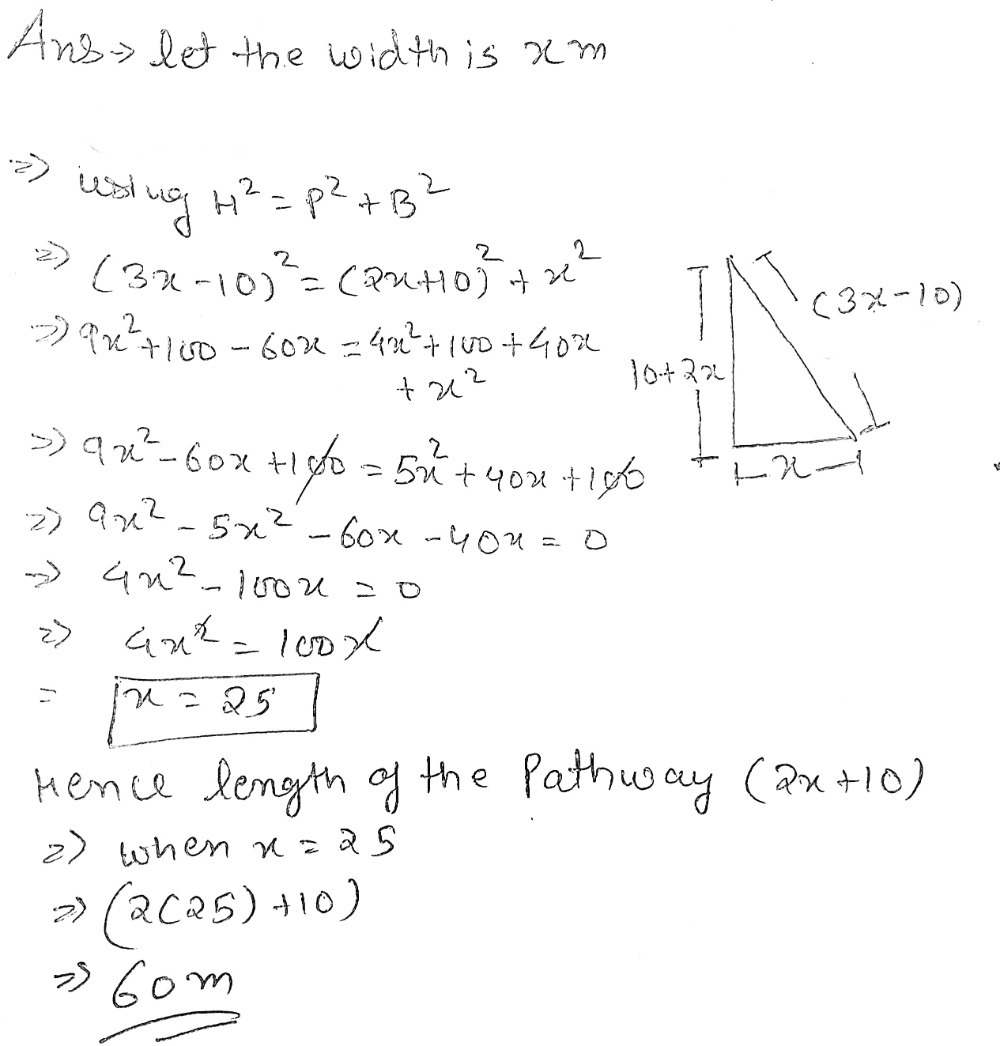 Ans → let the width is x m
⇒ using H² = P² + B²
⇒ (3x - 10)² = (2x+10)² + x²
⇒ 9x² + 100 - 60x = 4x² + 100 + 40x
+ x²
(3x-10)
10+2x
x
⇒ 9x² - 60x + 100 = 5x² + 40x + 100
⇒ 9x² - 5x² - 60x - 40x = 0
⇒ 4x² - 100x = 0
⇒ 4x² = 100x
= x = 25
Hence length of the Pathway (2x+10)
⇒ when x = 25
⇒ (2(25) +10)
⇒ 60m